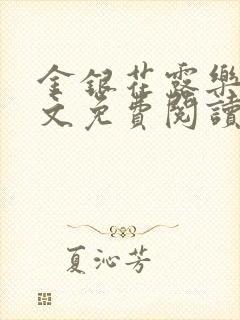 金銀花露樂
文免費閱讀
夏沁芳